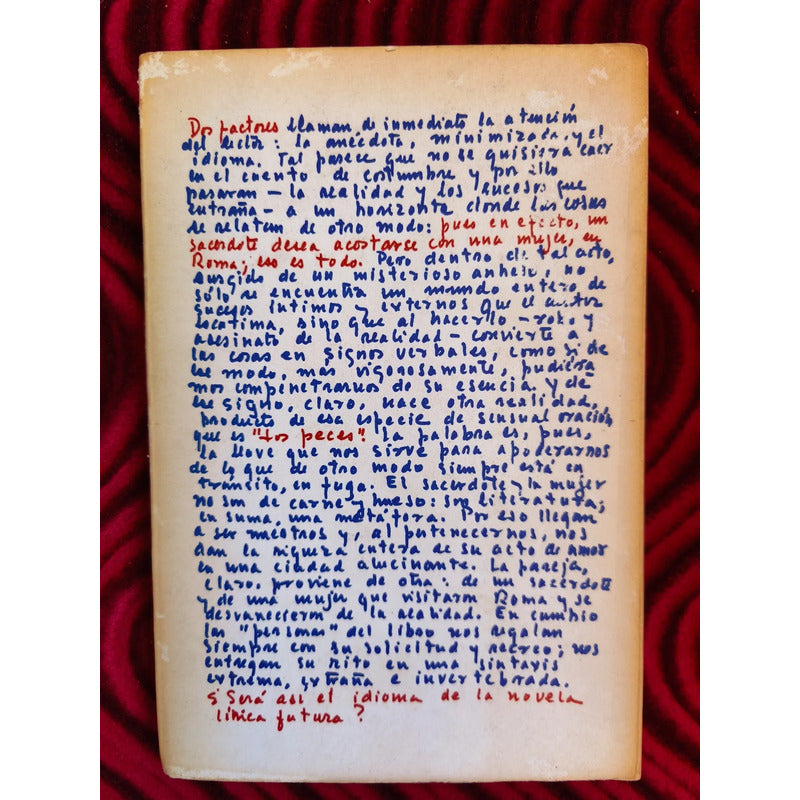 Dos factores llaman de inmediato la atención
del lector: la anécdota, minimizada, y el
idioma. Tal parece que no se quisiera caer
en el cuento de costumbre y por ello
pasaran - la realidad y los sucesos que
entraña - a un horizonte donde las cosas
se relatan de otro modo: pues en efecto, un
sacerdote desea acostarse con una mujer, en
Roma; eso es todo. Pero dentro de tal acto,
surgido de un misterioso anhelo, no
sólo se encuentra un mundo entero de
sucesos íntimos y externos que el autor
escatima, sino que al hacerlo - robo y
asesinato de la realidad - convierte a
las cosas en signos verbales, como si de
ese modo, más vigorosamente, pudiéra
mos compenetrarnos de su esencia. y de
ese signo, claro, nace otra realidad,
producto de esa especie de sensual oración
que es "Los peces". La palabra es, pues,
la llave que nos sirve para apoderarnos
de lo que de otro modo siempre está en
tránsito, en fuga. El sacerdote y la mujer
no son de carne y hueso: son literatura;
en suma, una metáfora. Por eso llegan
a ser nuestros y, al pertenecernos, nos
dan la riqueza entera de su acto de amor
en una ciudad alucinante. La pareja,
claro, proviene de otra: de un sacerdote
y de una mujer que visitaron Roma y se
desvanecieron de la realidad. En cambio
las "personas" del libro nos regalan
siempre con su solicitud y recreo; nos
entregan su rito en una sintaxis
extrema, extraña e invertebrada.
¿Será así el idioma de la novela
lírica futura?